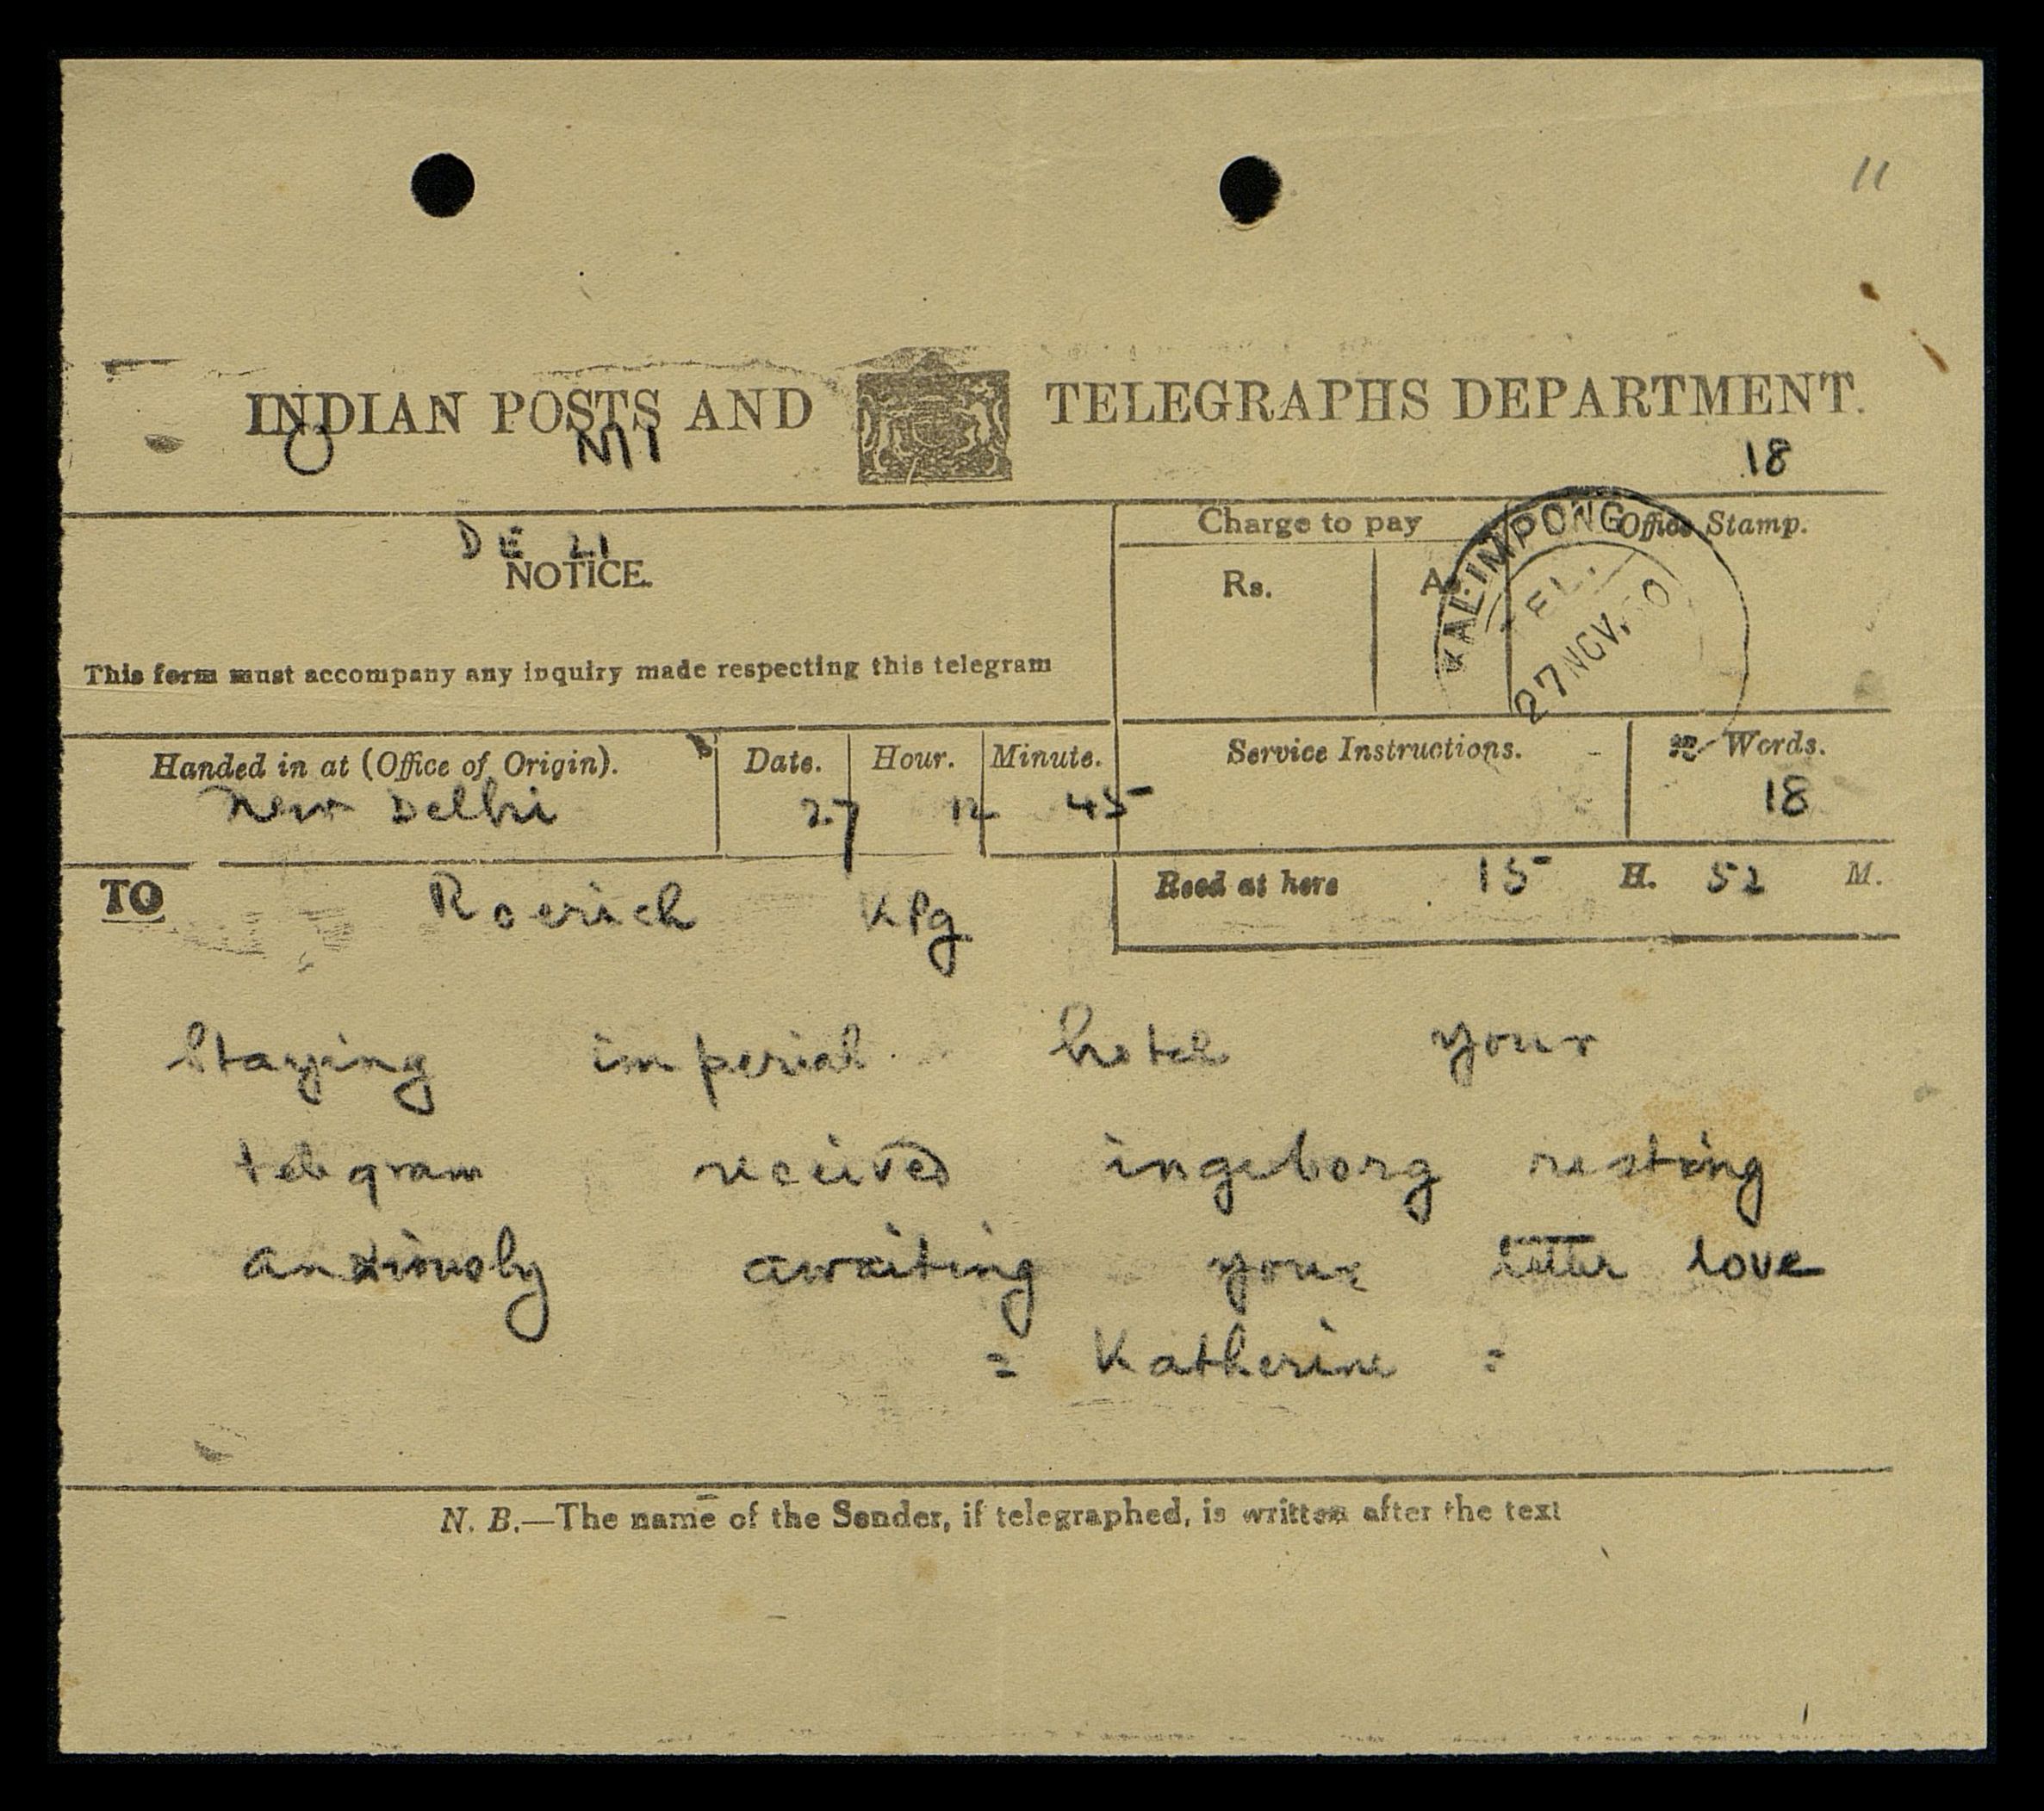 11
INDIAN POSTS AND TELEGRAPHS DEPARTMENT.
18
DE 21
NOTICE.
Charge to pay
Office Stamp.
Rs.
KALIMPONG
TEL.
27 NOV.
This form must accompany any inquiry made respecting this telegram
Handed in at (Office of Origin). Date. Hour. Minute. Service Instructions. Words.
New Delhi 27 12 45 18
TO Roerich KPg
Recd at here 15 H. 52 M.
Staying imperial hotel your
telegram received ingeborg resting
anxiously awaiting your letter love
= Katherine =
N. B.—The name of the Sender, if telegraphed, is written after the text